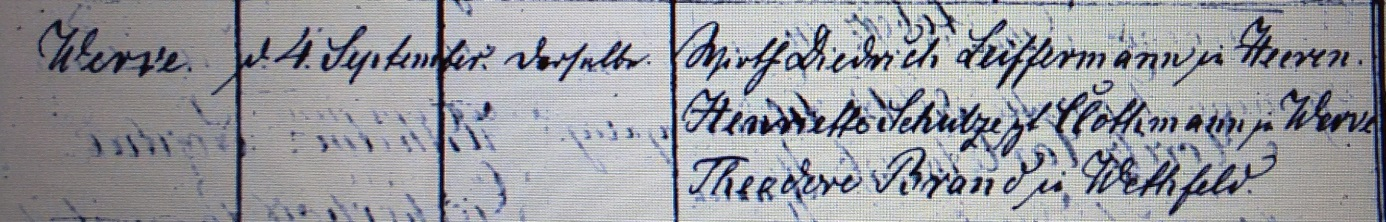 Werve. d. 4. September. derselbe. Wirth Diedrich Leiffermann zu Heeren.
Henriette Schulze gt Clothmann zu Werve
Theodore Brand zu Wethfeld.